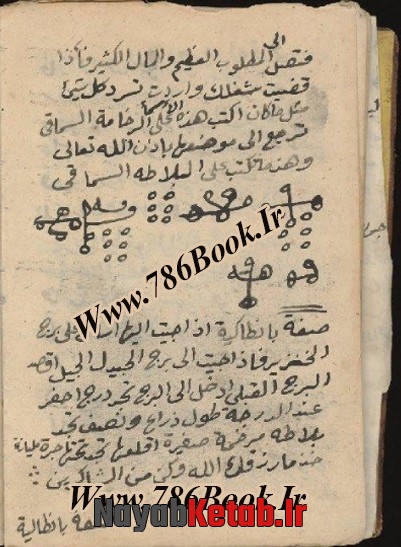 فتصل الى المطلوب العظيم والمال الكثير فاذا
قضيت شغلك واردت ترد كل شيء
مثل ماكان اكتب هذه الاسماء على الرخامة السماقي
ترجع الى موضعها باذن الله تعالى
وهذه تكتب على البلاطه السماقي
Www.786Book.Ir
صفة بانطاكية اذا جيت اليها اسال على برج
الخنزير فاذا جيت الى برج الجبيل اقصد
البرج القبلي ادخل الى البرج تجد درج احفر
عند الدرجة طول ذراع ونصف تجد
بلاطه مرخمة صغيرة اقلعها تجد تحتها جرة مليانة
خذ ما رزقك الله وكن من الشاكرين
Www.786Book.Ir
بانطاكية
NayabKetab.Ir